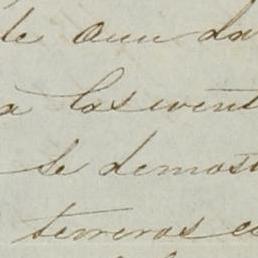 de Ouu da
a las event
se demost
terreros co